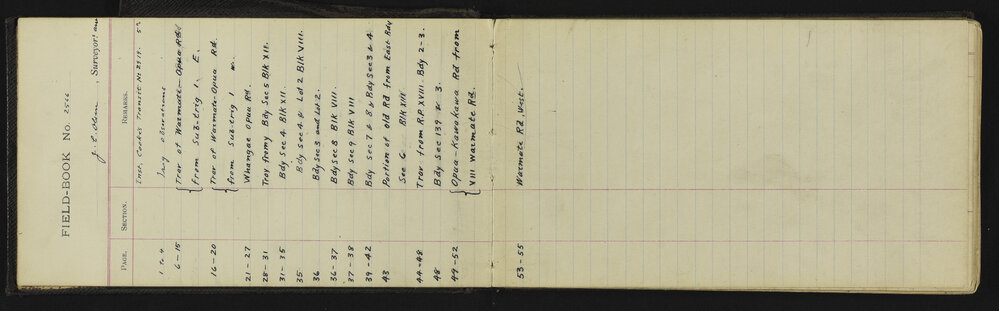 FIELD-BOOK No. 2566
, Surveyor.
PAGE. SECTION. REMARKS.
Inst. Cooke's Transit No.
1 to 4 Observations
6-15 Trav of Waimate-Opua Rd
from Sub-trig I E.
16-20 Trav of Waimate-Opua Rd.
from Sub-trig I W.
21-27 Whangae Opua Rd.
28-31 Trav from Bdy Sec 5 Blk XII.
31-35 Bdy Sec 4 Blk XII.
35 Bdy Sec 4 & Lot 2 Blk VIII.
36 Bdy Sec 5 and Lot 2.
36-37 Bdy Sec 8 Blk VIII.
37-38 Bdy Sec 9 Blk VIII
39-42 Bdy Sec 7 & 8 & Bdy Sec 3 & 4.
43 Portion of old Rd from East Bdy
Sec 6 Blk XIII
44-48 Trav from R.P. XVIII. Bdy 2-3.
48 Bdy Sec 139 & 3.
49-52 Opua-Kawakawa Rd from
VIII Waimate Rd.
53-55 Waimate Rd, West.